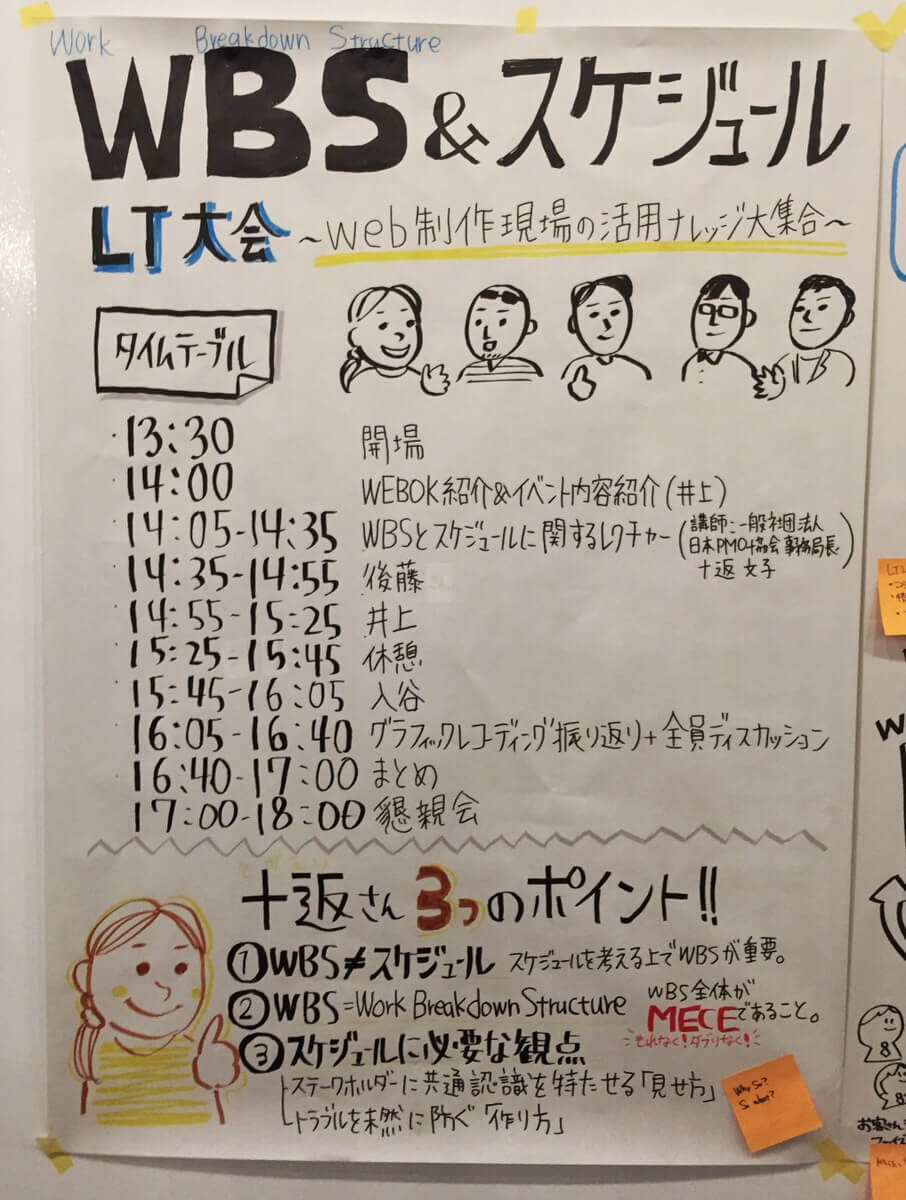 Work Breakdown Structure
WBS&スケジュール
LT大会 ～web制作現場の活用ナレッジ大集合～
タイムテーブル
・13:30 開場
14:00 WEBOK紹介&イベント内容紹介(井上)
・14:05-14:35 WBSとスケジュールに関するレクチャー(講師:一般社団法人
日本PMO協会 事務局長
十返 文子)
・14:35-14:55 後藤
・14:55-15:25 井上
・15:25-15:45 休憩
・15:45-16:05 入谷
・16:05-16:40 グラフィックレコーディング振り返り+全員ディスカッション
・16:40-17:00 まとめ
・17:00-18:00 懇親会
とがえり
十返さん3つのポイント!!
①WBS≠スケジュール スケジュールを考える上でWBSが重要。
②WBS=Work Breakdown Structure WBS全体が
MECEであること。
もれなく!ダブりなく!
③スケジュールに必要な観点
ステークホルダーに共通認識を持たせる「見せ方」
トラブルを未然に防ぐ「作り方」
Why So?
So what?
W
8
8
お客さん